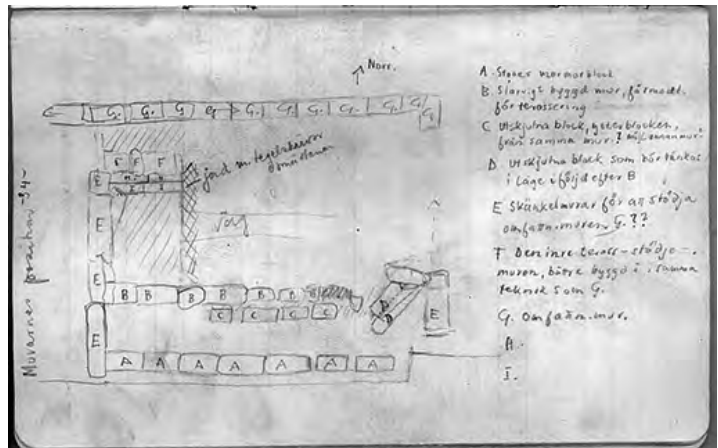 Murarnes position 94-
Norr.
G. G. G G G. G. G. G. G. G G
F F F
E
jord m. tegelskärvor
E
Väg
E
B B B B B B
C C C C
D
D
E
E
A A A A A A A
A. Större marmorblock
B. Slarvigt byggd mur, förmodl.
för terassering
C Utskjutna block, ytterblocken,
från samma mur?
D. Utskjutna block som bör tänkas
i läge i följd efter B
E Skänkelmurar för att stödja
omfattn.muren G.??
F Den inre terass-stödje-
muren, bättre byggd i samma
teknik som G.
G. Omfattn.mur.
I.